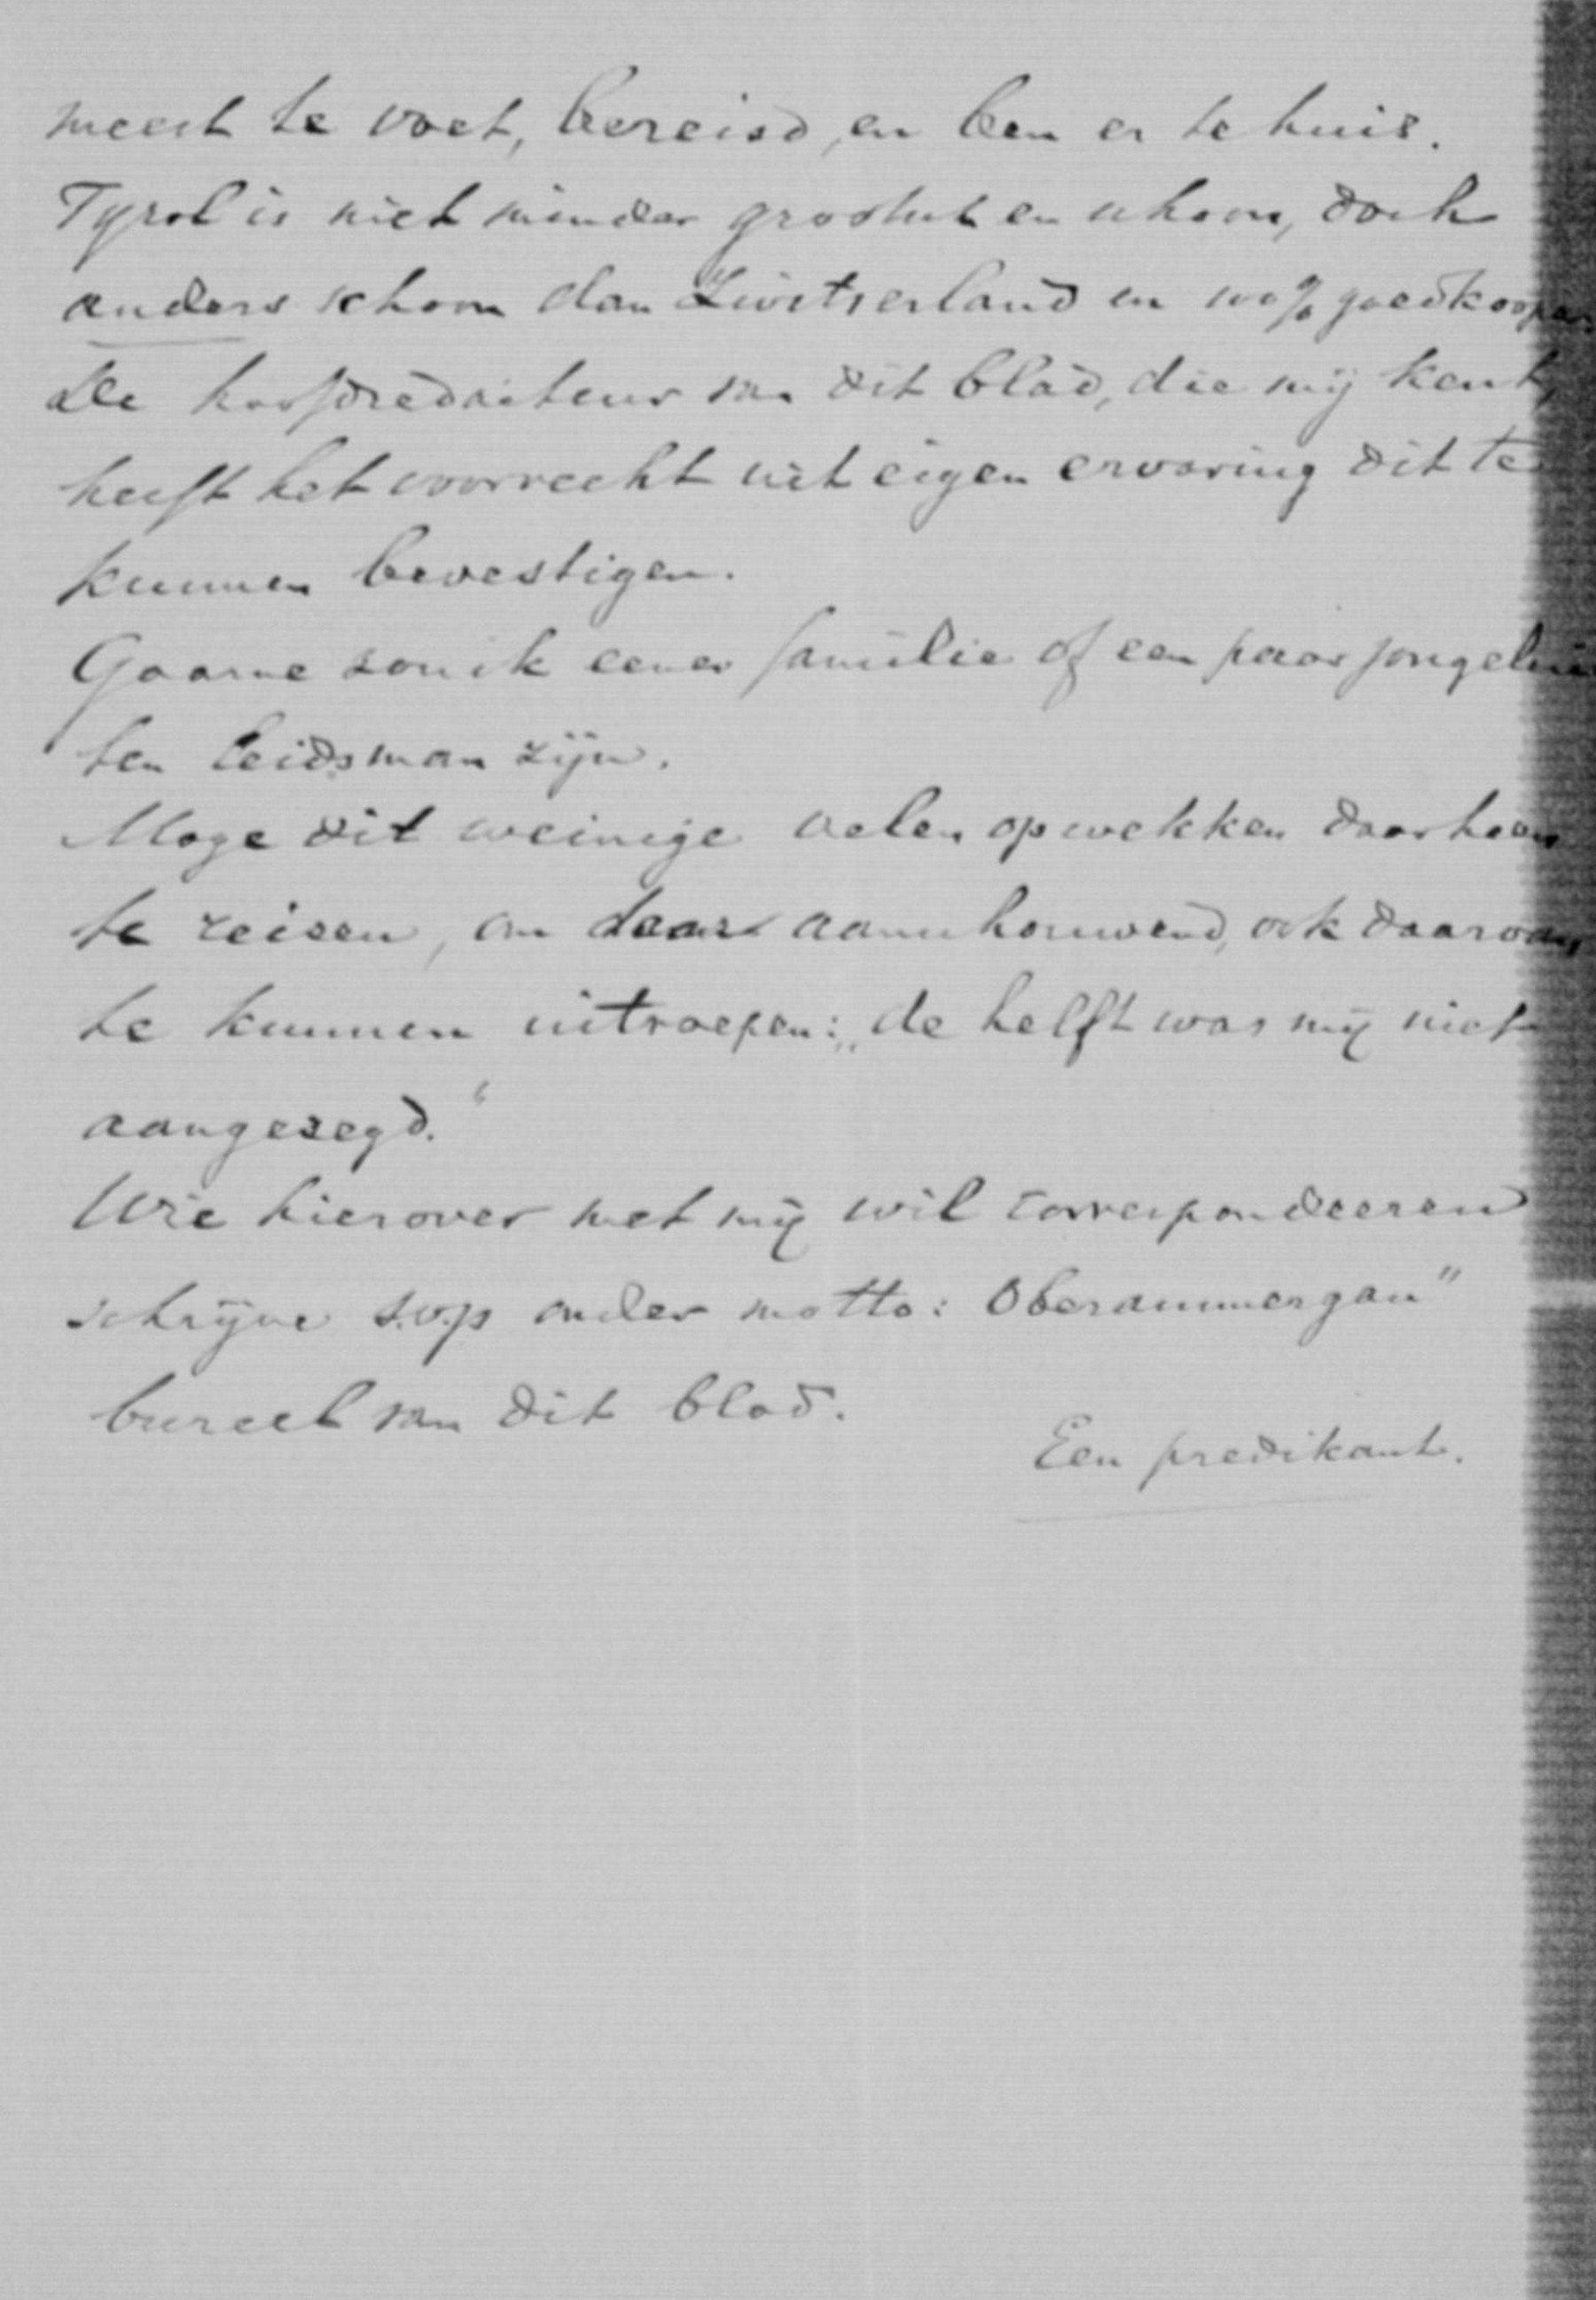 meest te voet, bereisd, en ben er te huis.
Tyrol is niet minder grootsch en schoon, doch
anders schoon dan Zwitserland en 100% goedkooper
De hoofdredacteur van dit blad, die mij kent,
heeft het voorrecht uit eigen ervaring dit te
kunnen bevestigen.
Gaarne zou ik eener familie of een paar jongelui
ten leidsman zijn.
Moge dit weinige velen opwekken daarheen
te reizen, om daar aanschouwend, ook daarvan
te kunnen uitroepen: „de helft was mij niet
aangezegd.“
Wie hierover met mij wil correspondeeren
schrijve s.v.p onder motto: Oberammergau"
bureel van dit blad.
Een predikant.